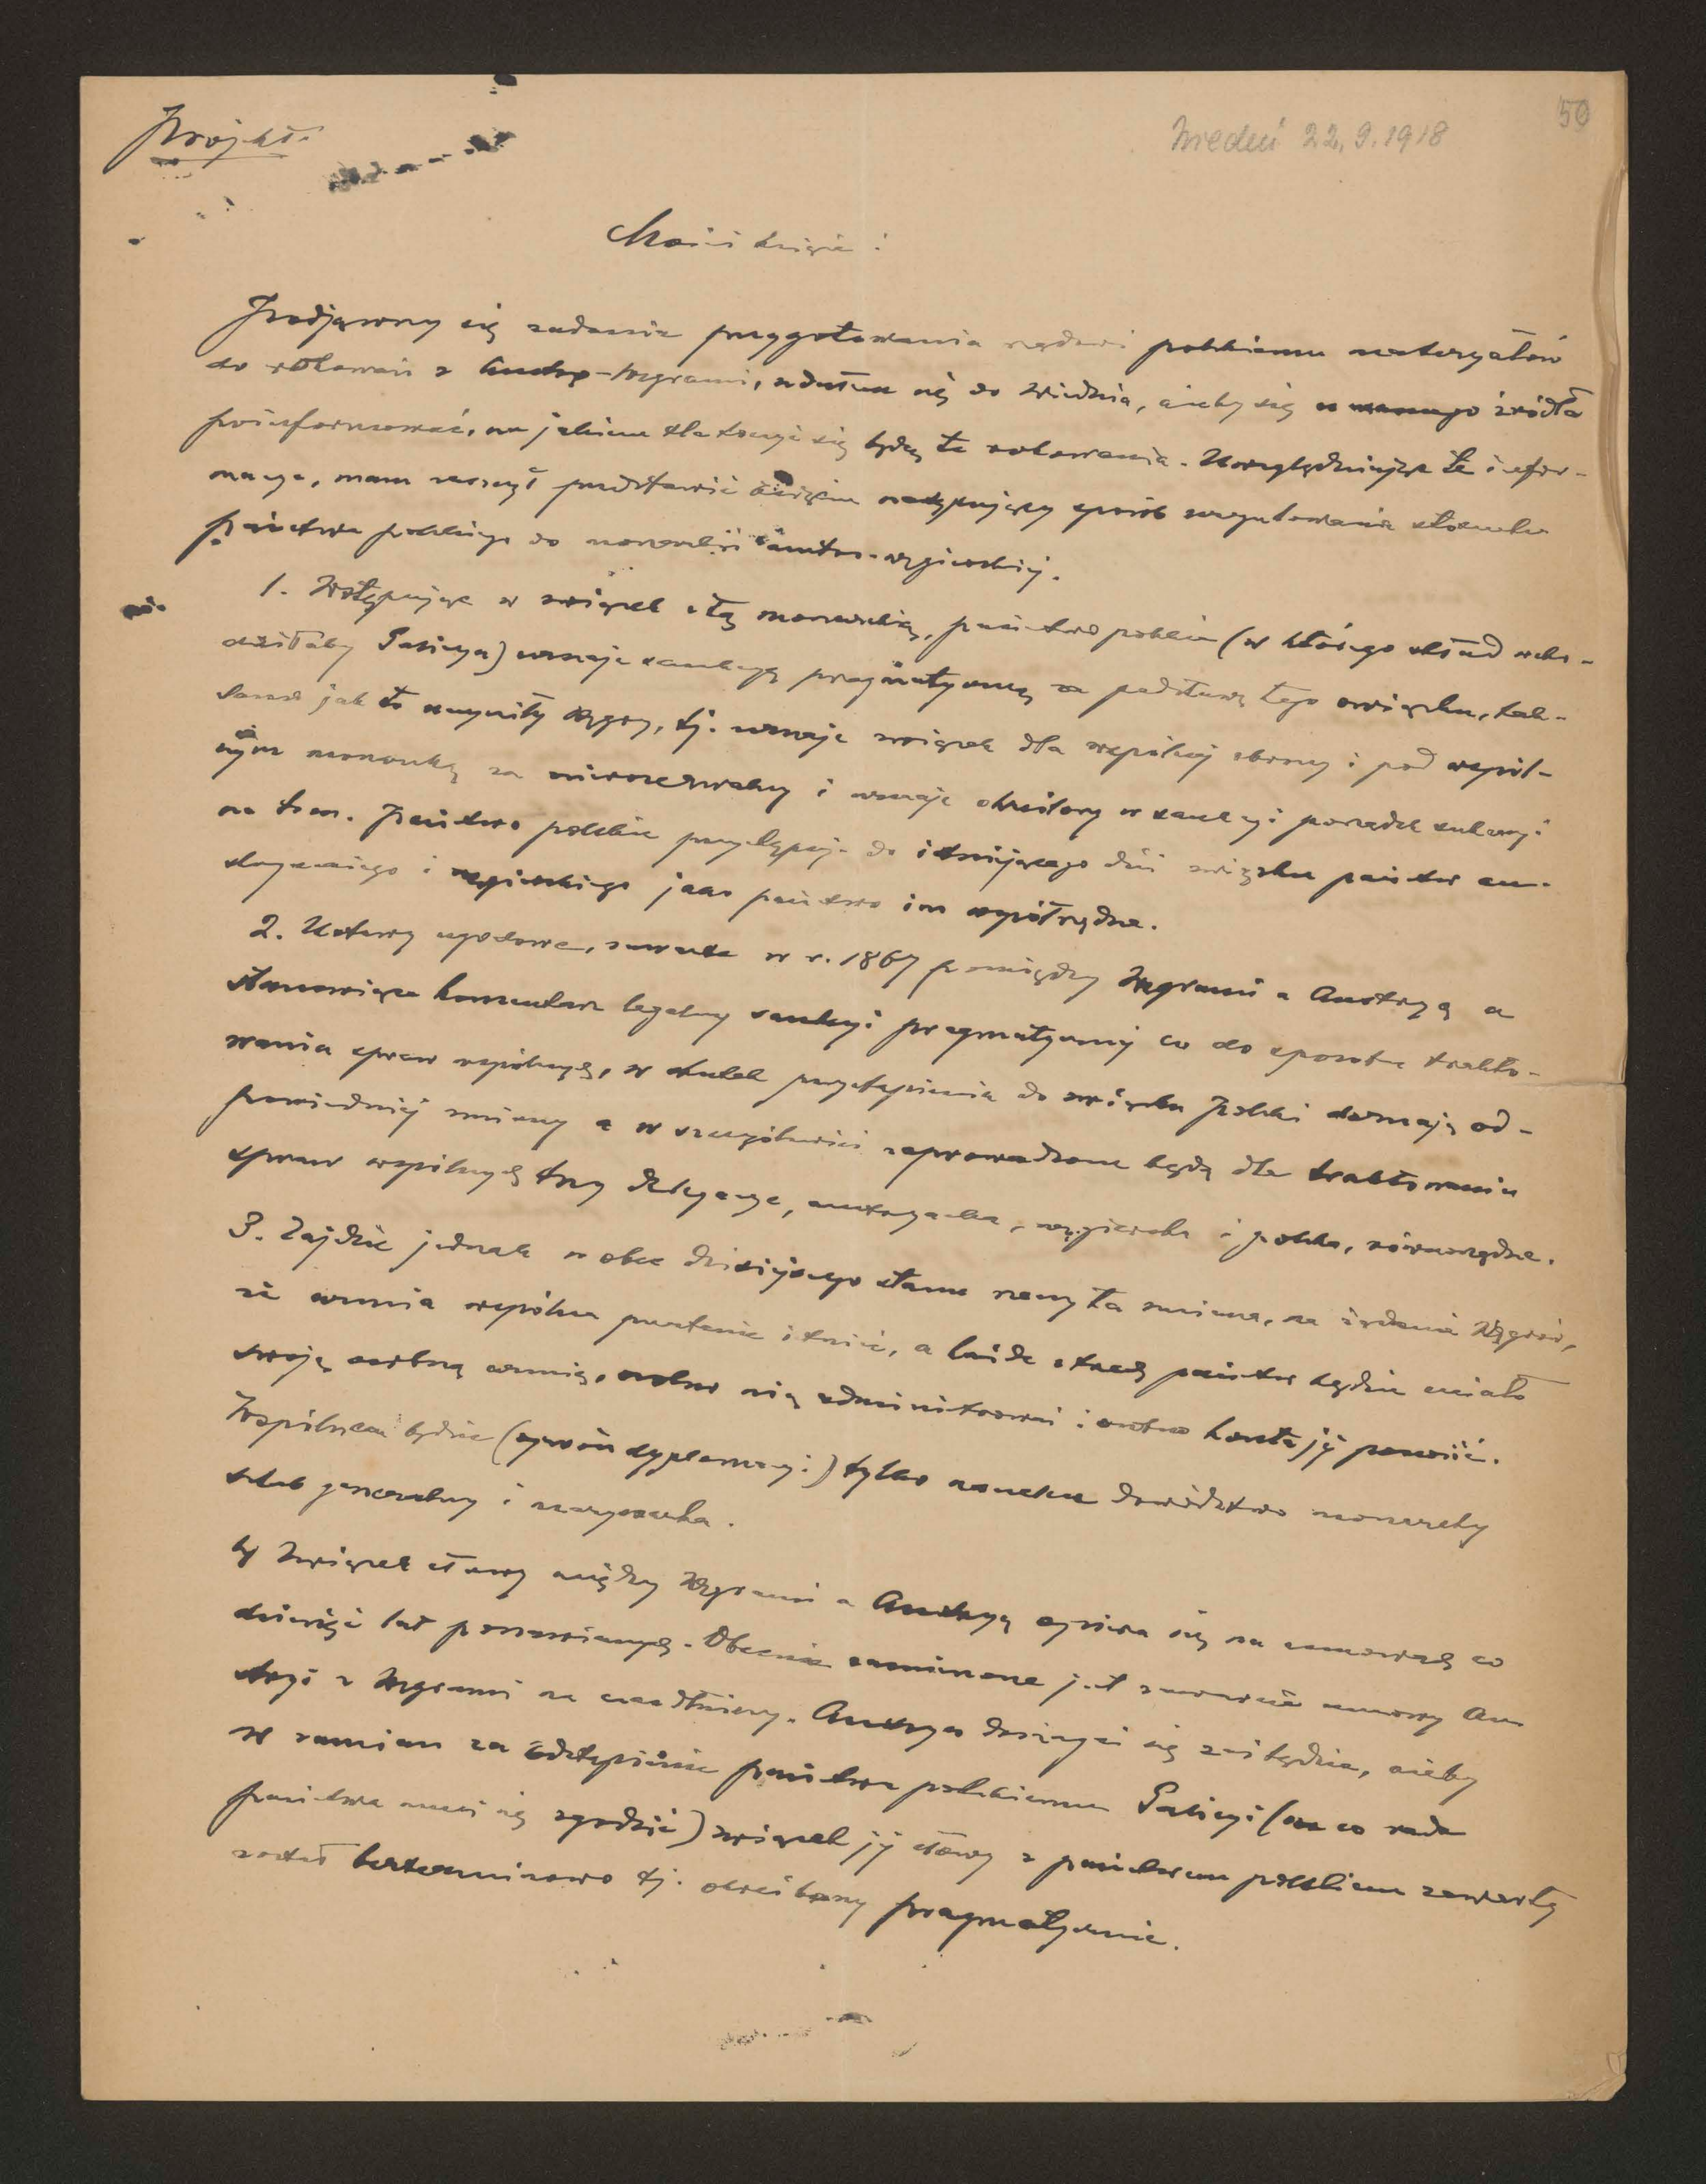 Projekt.
Wiedeń 22.9.1918
50
Mości książę!
Podjąwszy się zadania przygotowania rządowi polskiemu materyałów
do rokowań z Austro-Węgrami, udałem się do Wiednia, ażeby się u samego źródła
poinformować, na jakiem tle toczyć się będą te rokowania. Uwzględniając te infor-
macye, mam zaszczyt przedstawić księciu następujący sposób uregulowania stosunku
państwa polskiego do monarchii austro-węgierskiej.
1. Wstępując w związek z tą monarchią, państwo polskie (w którego skład wcho-
dziłaby Galicya) uznaje sankcyę pragmatyczną za podstawę tego związku, tak-
samo jak to uczyniły Węgry, tj. uznaje związek dla wspólnej obrony i pod wspól-
nym monarchą za nierozerwalny i uznaje określony w sankcyi porządek sukcesyi
na tron. Państwo polskie przystępuje do istniejącego dziś związku państw au-
stryackiego i węgierskiego jako państwo im współrzędne.
2. Ustawy ugodowe, zawarte w r. 1867 pomiędzy Węgrami a Austryą a
stanowiące komentarz legalny sankcyi pragmatycznej co do sposobu trakto-
wania spraw wspólnych, w skutek przystąpienia do związku Polski doznają od-
powiedniej zmiany a w szczególności zaprowadzone będą dla traktowania
spraw wspólnych trzy delegacye, austryacka, węgierska i polska, równorzędne.
3. Zajdzie jednak wobec dzisiejszego stanu rzeczy ta zmiana, na żądanie Węgrów,
że armia wspólna przestanie istnieć, a każde z trzech państw będzie miało
swoją osobną armię, osobno nią administrować i osobno koszta jej ponosić.
Wspólnem będzie (oprócz dyplomacyi) tylko naczelne dowództwo monarchy
sztab generalny i marynarka.
4) Związek cłowy między Węgrami a Austryą opiera się na umowach co
dziesięć lat ponawianych. Obecnie zamierzone jest zawarcie umowy Au-
stryi z Węgrami na lat dłużej. Austrya domagać się zaś będzie, ażeby
w zamian za odstąpienie państwu polskiemu Galicyi (na co rada
państwa musi się zgodzić) związek jej cłowy z państwem polskiem zawarty
został bezterminowo tj. określony pragmatycznie.